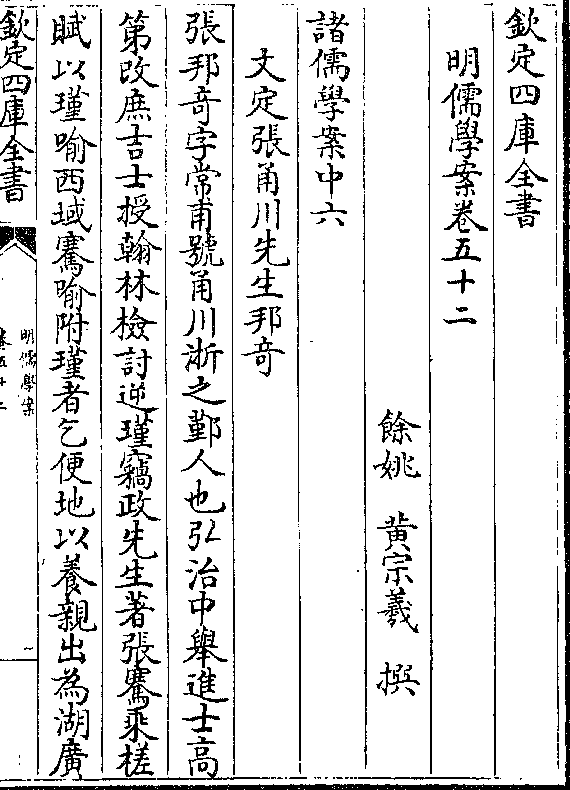 欽定四庫全書
明儒學案卷五十二
餘姚　黃宗羲　撰
諸儒學案中六
文定張甬川先生邦竒
張邦竒字常甫號甬川浙之鄞人也弘治中舉進士高
第改庶吉士授翰林檢討逆瑾竊政先生著張騫乘槎
賦以瑾喻西域騫喻附瑾者乞便地以養親出為湖廣
欽定四庫全書
明儒學案
卷五十二